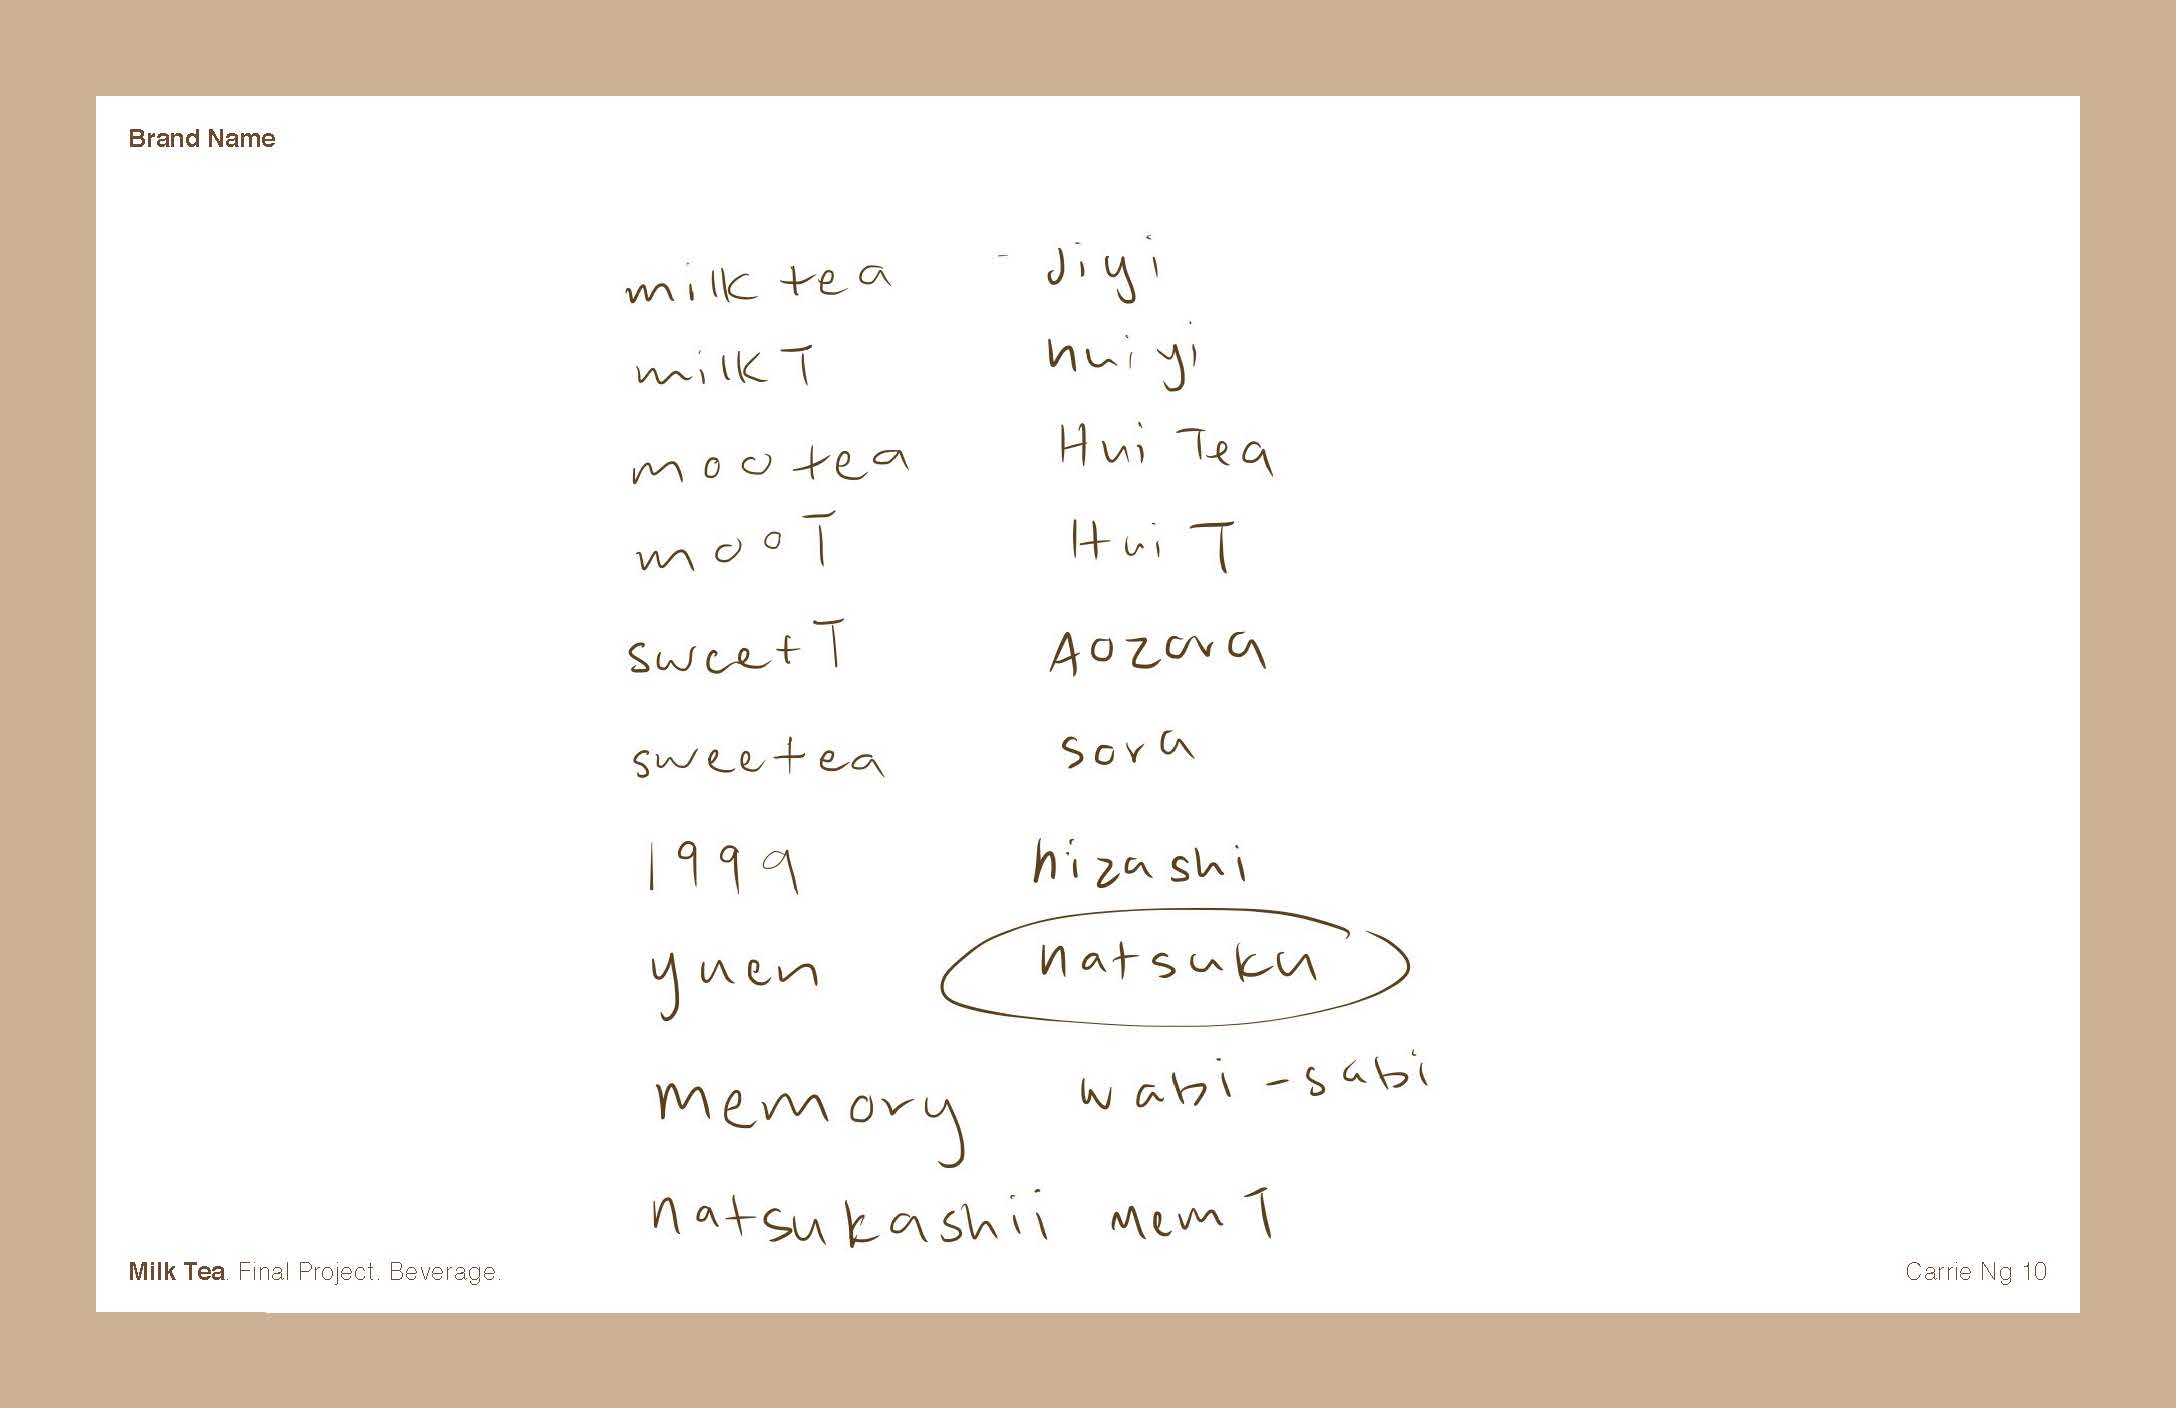 Brand Name
milk tea
milk T
moo tea
moo T
sweet T
sweetea
1999
yuen
memory
natsukashii
Jiyi
huiyi
Hui Tea
Hui T
Aozora
sora
hizashi
natsuku
wabi-sabi
mem T
Milk Tea. Final Project. Beverage.
Carrie Ng 10